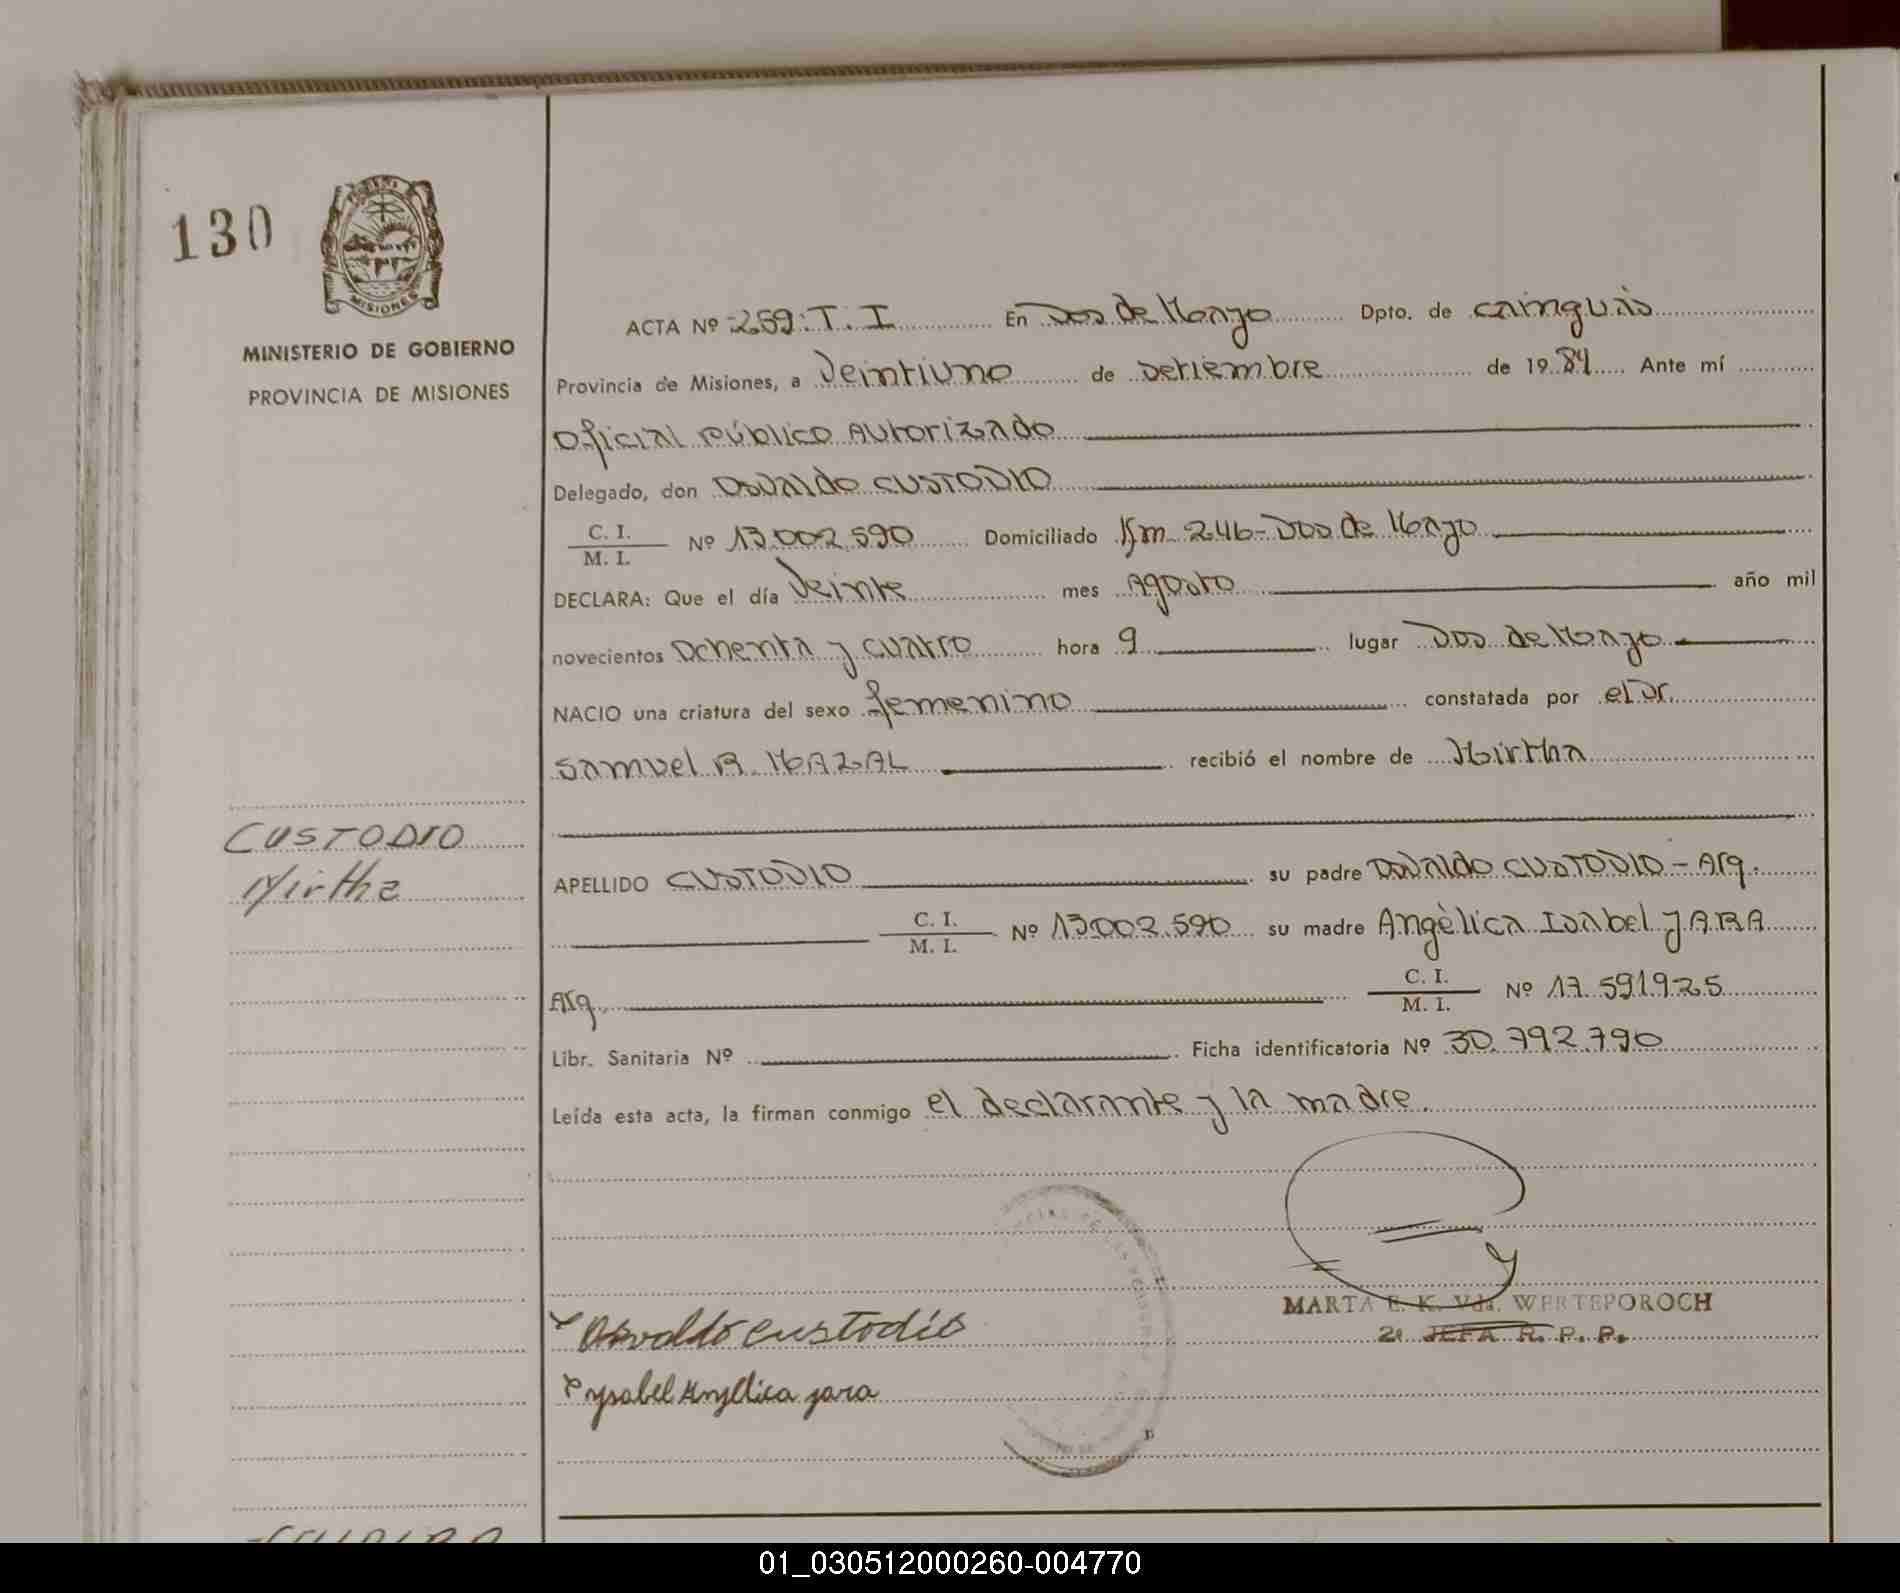 130
MISIONES
MINISTERIO DE GOBIERNO
PROVINCIA DE MISIONES
ACTA Nº 259. T. I En Dos de Mayo Dpto. de cainguás
Provincia de Misiones, a Veintiuno de setiembre de 1984 Ante mí
Oficial Público Autorizado
Delegado, don Osvaldo CUSTODIO
C. I.
M. I. Nº 13.002.590 Domiciliado Km 246 - Dos de Mayo
DECLARA: Que el día Veinte mes Agosto año mil
novecientos Ochenta y cuatro hora 9 lugar Dos de Mayo
NACIO una criatura del sexo femenino constatada por el Dr.
Samuel R. MAZAL recibió el nombre de Mirtha
CUSTODIO
Mirtha
APELLIDO CUSTODIO su padre Osvaldo CUSTODIO - Arg.
C. I.
M. I. Nº 13.002.590 su madre Angèlica Isabel JARA
Arg. C. I.
M. I. Nº 17.591925
Libr. Sanitaria Nº Ficha identificatoria Nº 30.792.790
Leída esta acta, la firman conmigo el declarante y la madre.
MARTA E. K. Vda. WERTEPOROCH
2ª JEFA R. P. P.
Osvaldo custodio
ysabel Angelica jara
01_030512000260-004770